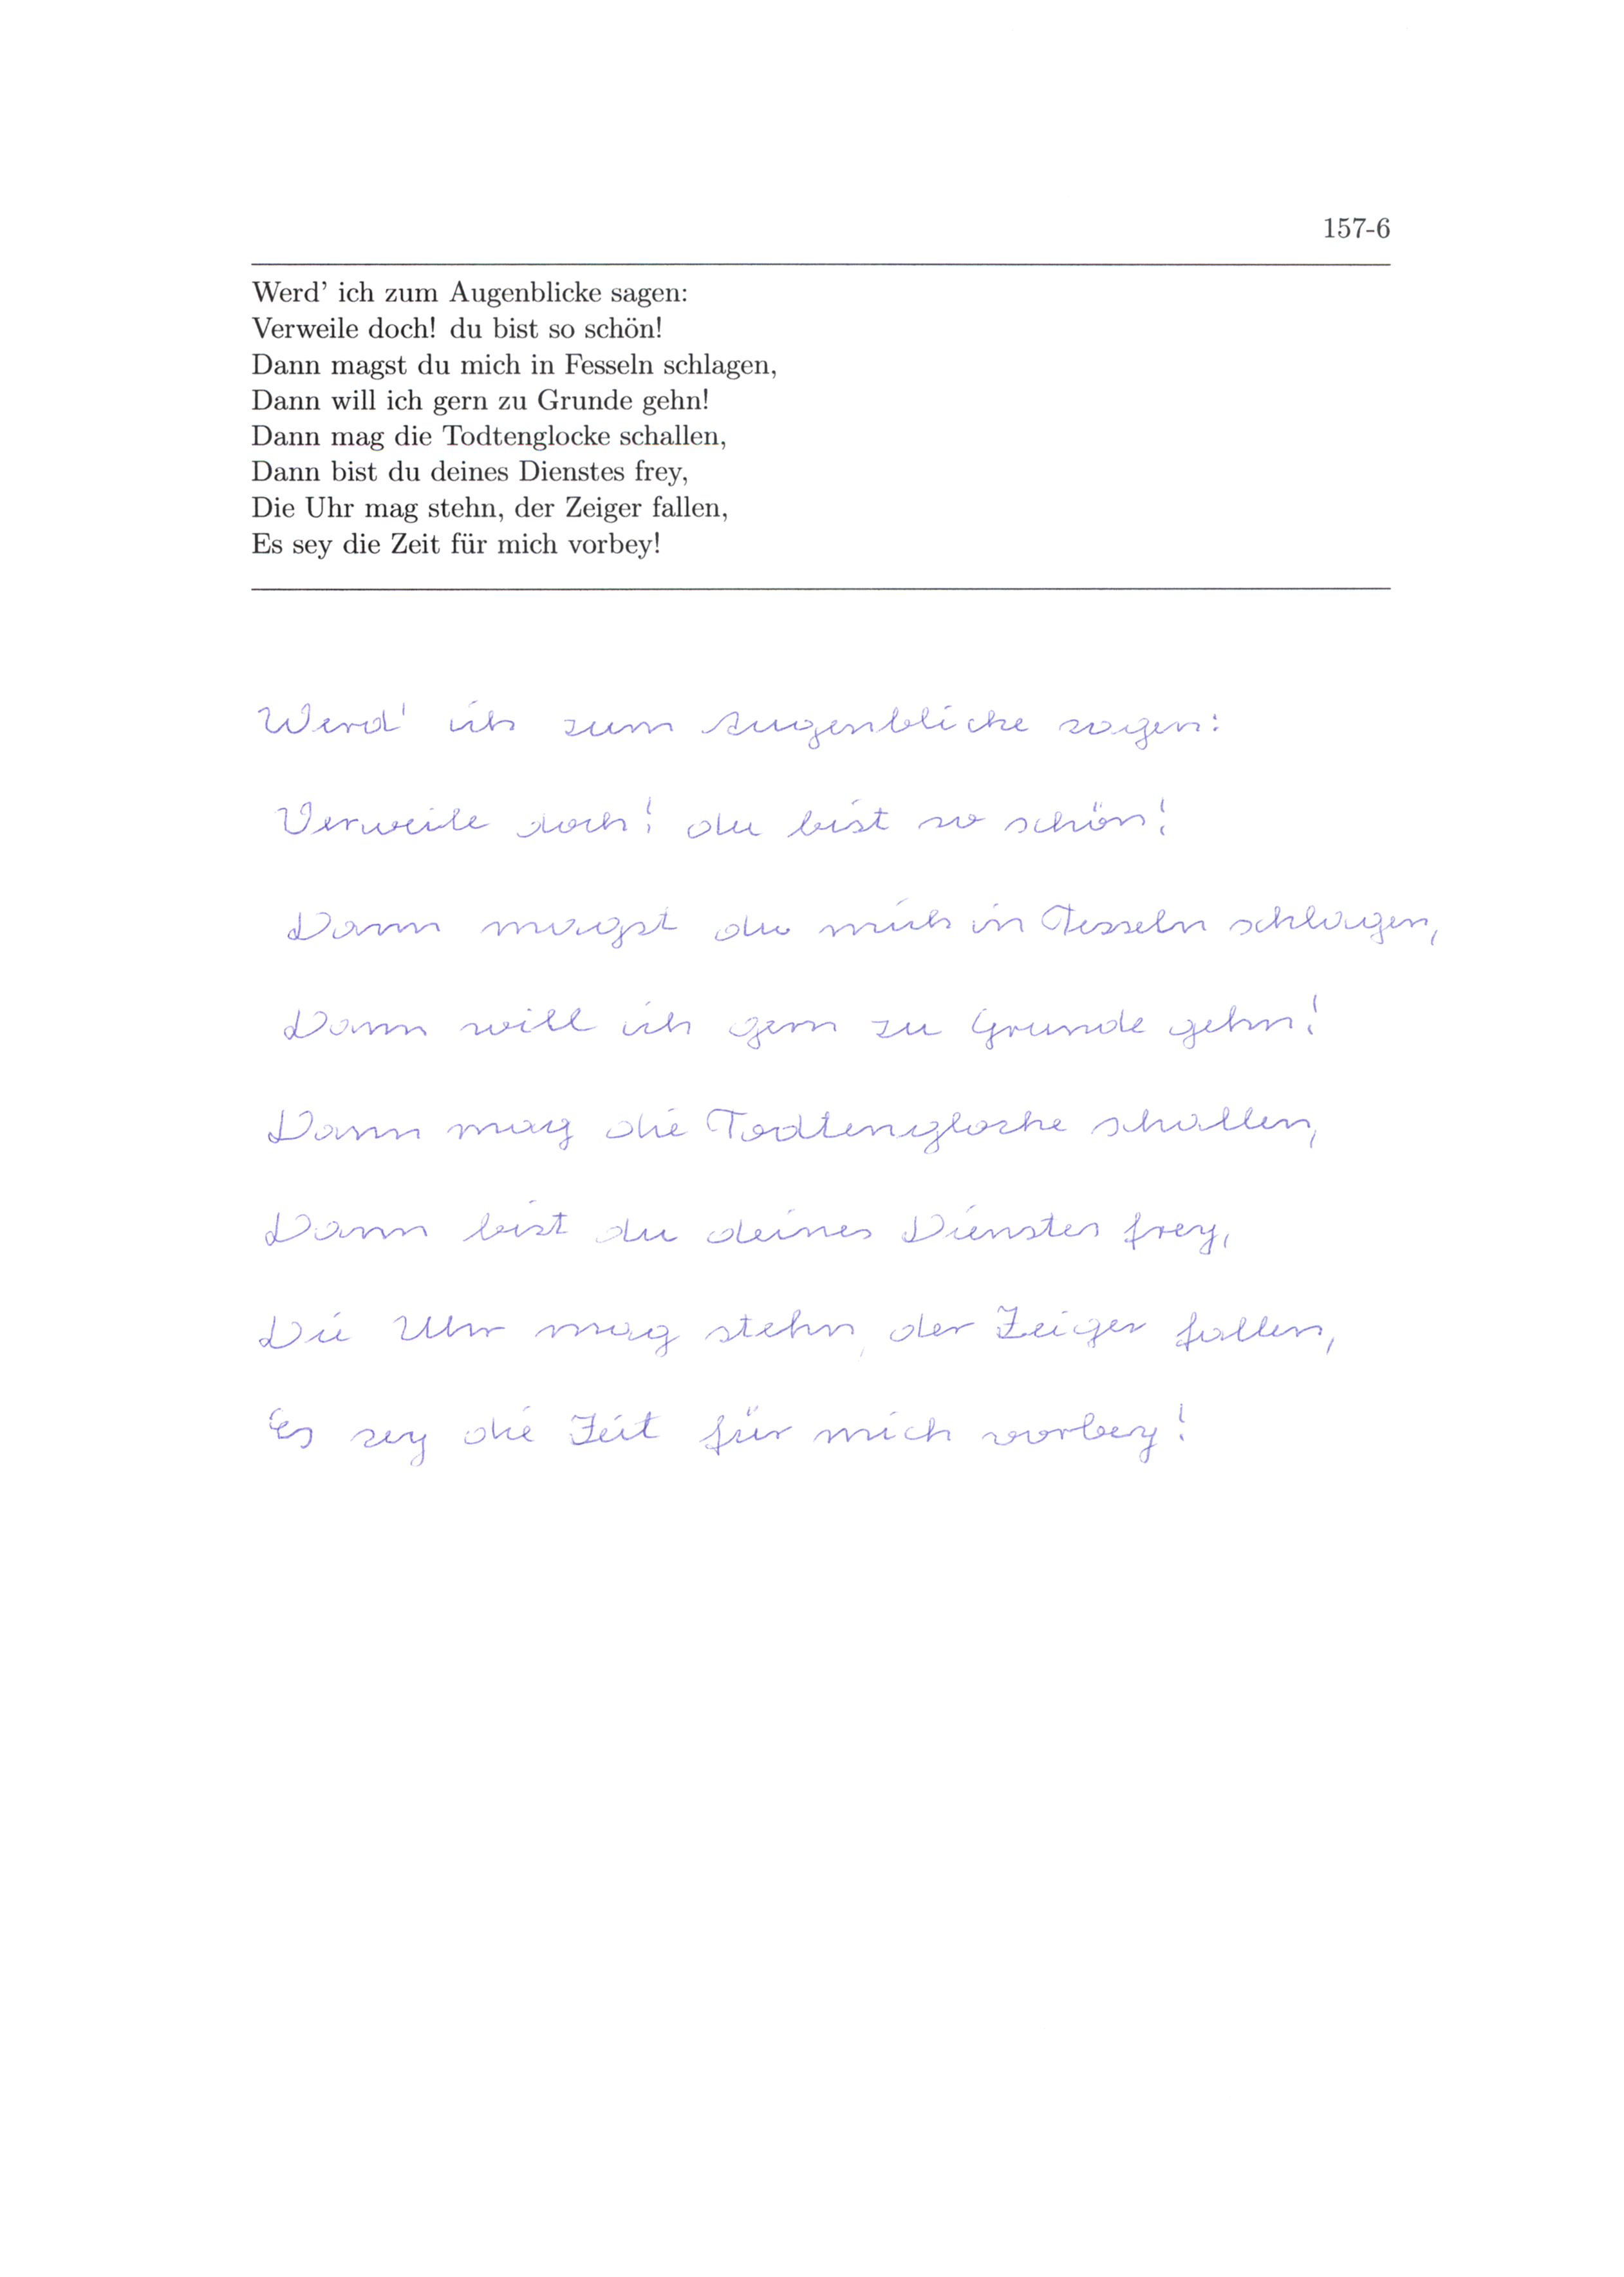 157-6
Werd’ ich zum Augenblicke sagen:
Verweile doch! du bist so schön!
Dann magst du mich in Fesseln schlagen,
Dann will ich gern zu Grunde gehn!
Dann mag die Todtenglocke schallen,
Dann bist du deines Dienstes frey,
Die Uhr mag stehn, der Zeiger fallen,
Es sey die Zeit für mich vorbey!
Werd' ich zum Augenblicke sagen:
Verweile doch! du bist so schön!
Dann magst du mich in Fesseln schlagen,
Dann will ich gern zu Grunde gehn!
Dann mag die Todtenglocke schallen,
Dann bist du deines Dienstes frey,
Die Uhr mag stehn, der Zeiger fallen,
Es sey die Zeit für mich vorbey!